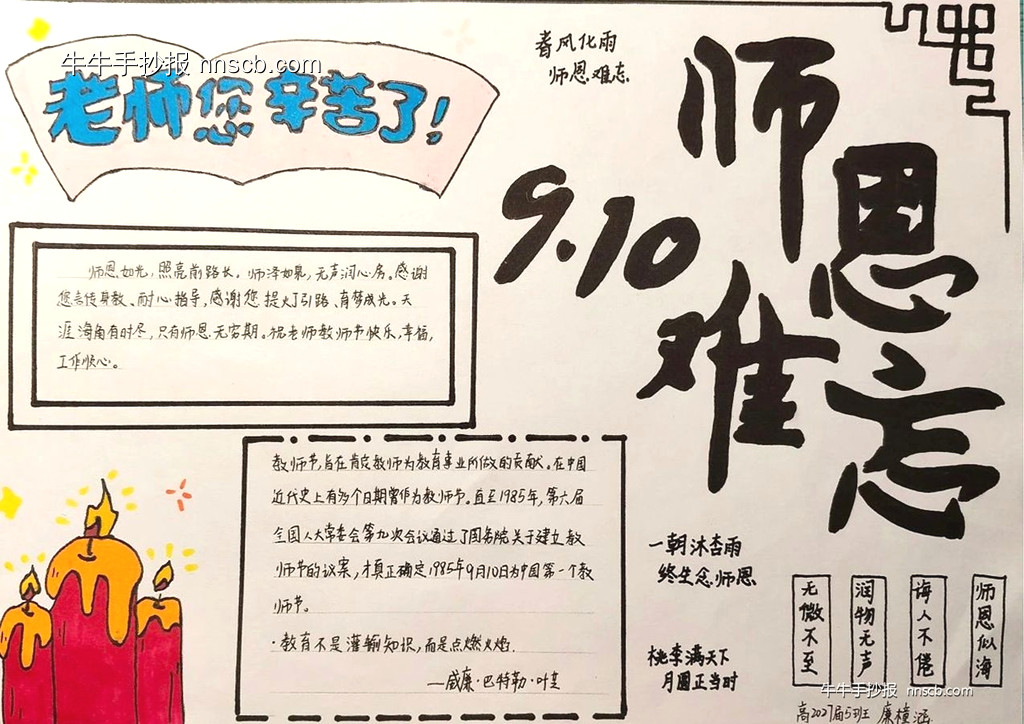 牛牛手抄报 nnscb.com
老师您辛苦了!
春风化雨
师恩难忘
师恩难忘
9.10
师恩如光,照亮前路长。师泽如暴,无声润心房。感谢
您言传身教、耐心指导,感谢您提灯引路、育梦成光。天
涯海角有时尽,只有师恩无穷期。祝老师教师节快乐,幸福,
工作顺心。
教师节,旨在肯定教师为教育事业所做的贡献。在中国
近代史上有多个日期曾作为教师节。直至1985年,第六届
全国人大常委会第九次会议通过了国务院关于建立教
师节的议案,才真正确定1985年9月10日为中国第一个教
师节。
·教育不是灌输知识,而是点燃火焰.
—威廉·巴特勒·叶芝
一朝沐杏雨
终生念师恩
桃李满天下
月圆正当时
无微不至
润物无声
诲人不倦
师恩似海
牛牛手抄报 nnscb.com
高2027届5班 廉樟涵